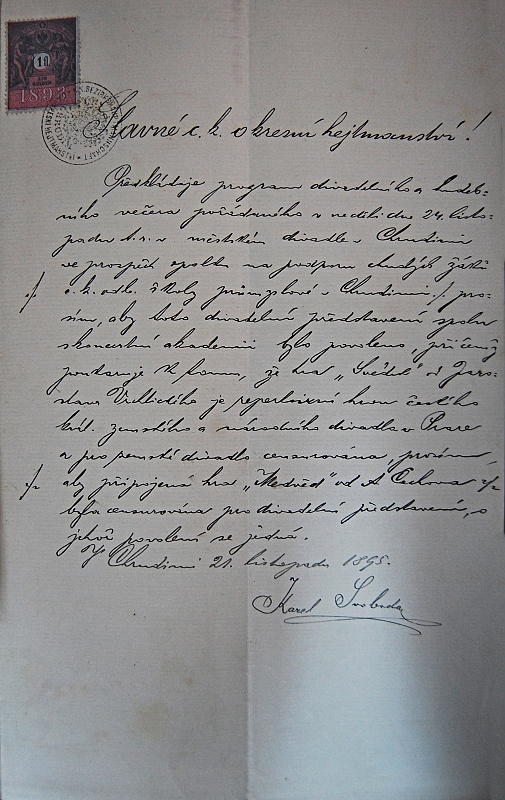 1 fl
1893
Slavné c. k. okresní hejtmanství!
Předkládaje program divadelního a hudeb-
ního večera pořádaného v neděli dne 24. listo-
padu t. r. v městském divadle v Chrudimi
ve prospěch spolku na podporu chudých žáků
c. k. odb. školy průmyslové v Chrudimi ./. pro-
sím, aby toto divadelní představení spolu
s koncertní akademií bylo povoleno, přičemž
poukazuje k tomu, že hra „Svědek" od Jaro-
slava Vrchlického je repertoirní hrou českého
král. zemského a národního divadla v Praze
a pro zemské divadlo censurována, prosím
./. aby připojená hra „Medvěd" od A Čechova ./.
byla censurována pro divadelní představení, o
jehož povolení se jedná.
V Chrudimi 21. listopadu 1895.
Karel Svoboda